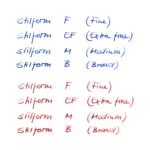 stilform F (Fine)
stilform EF (Extra fine)
stilform M (Medium)
stilform B (Broad)
stilform F (Fine)
stilform EF (Extra fine)
stilform M (Medium)
stilform B (Broad)